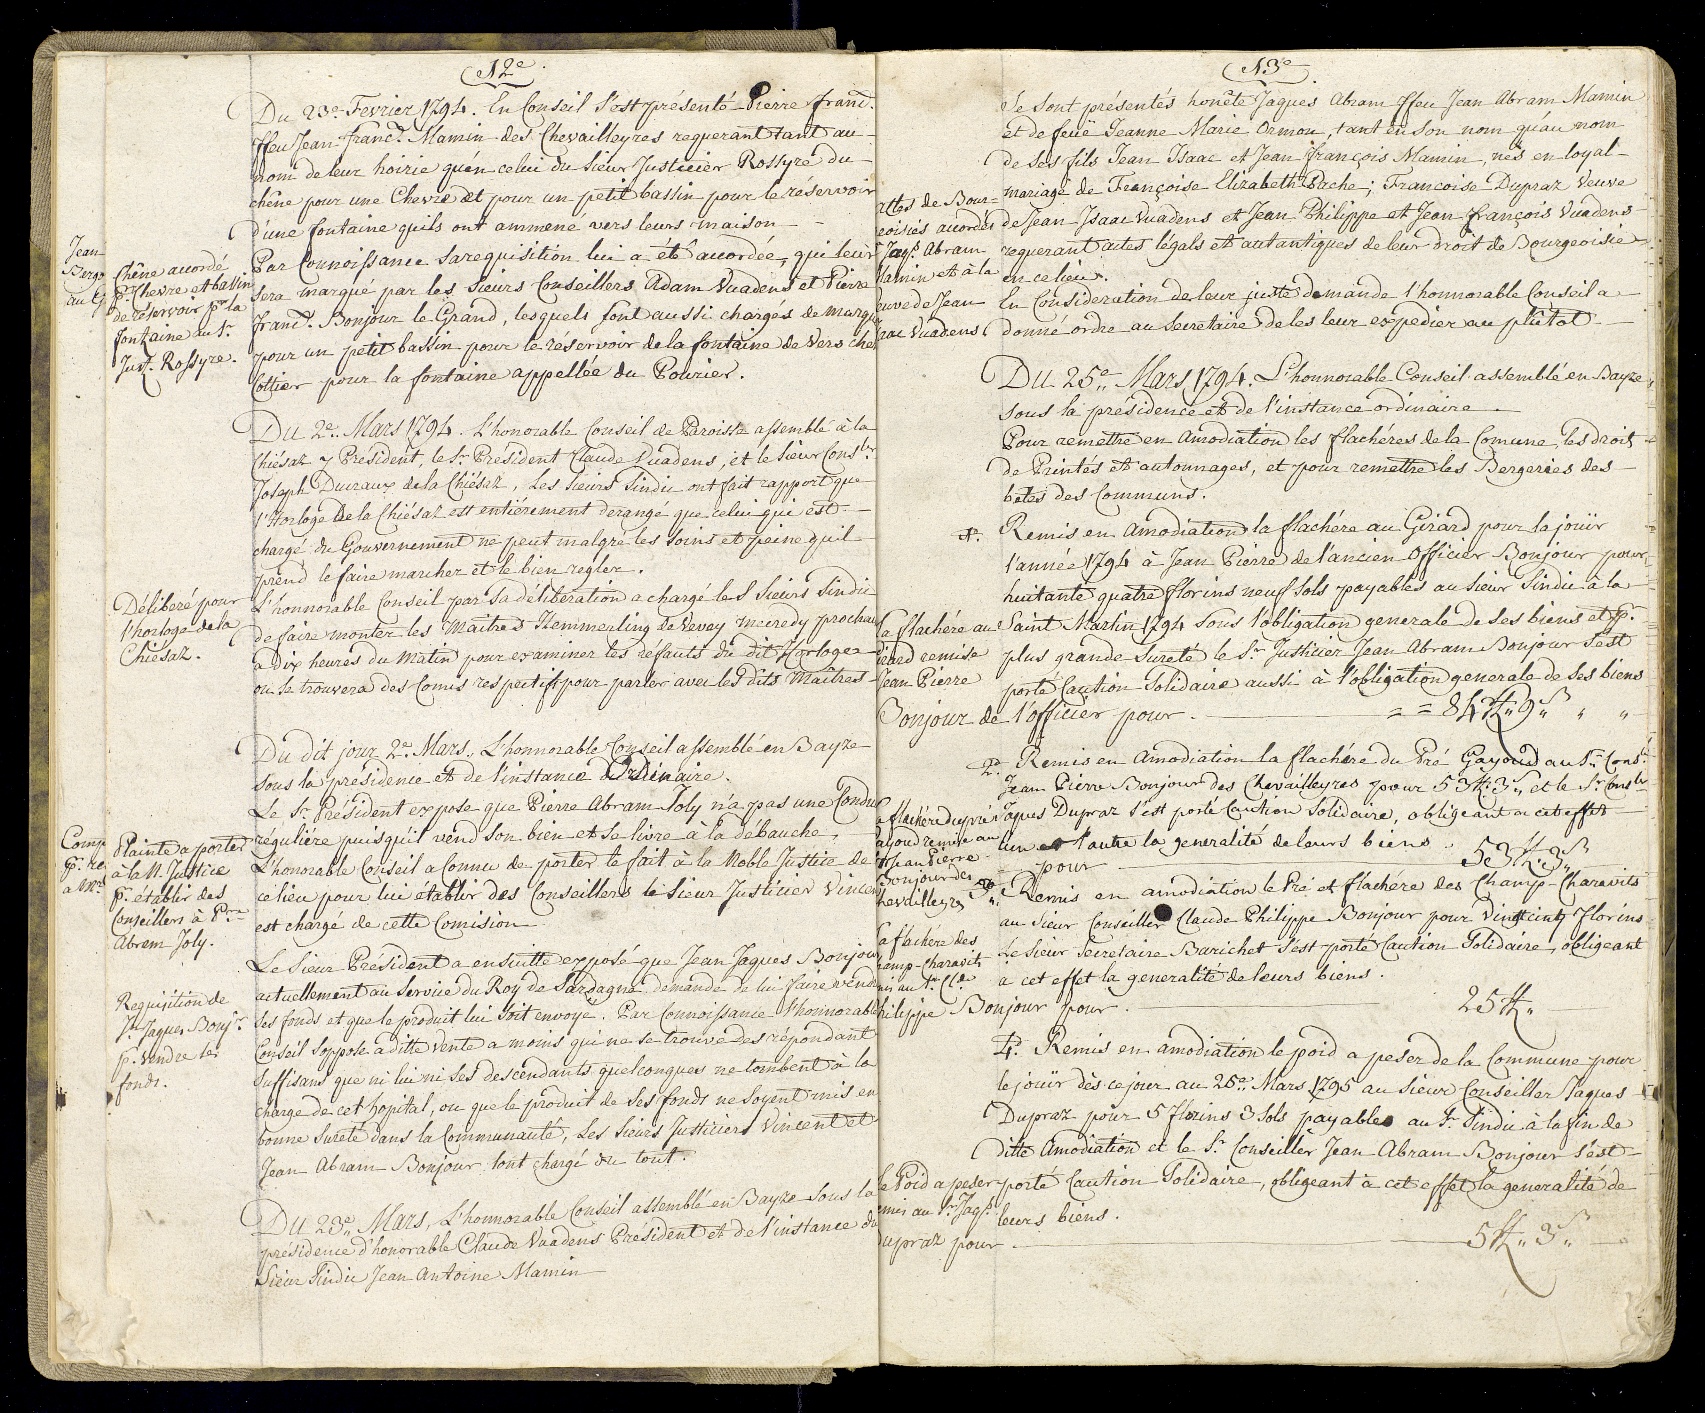 12e.
Du 23e. Fevrier 1794. En Conseil s'est présenté Pierre franc.
ffeu Jean franc. Mamin des Chevailleyres requerant tant au
nom de leur hoirie qu'en celui du Sieur Justicier Rossyre du
chêne pour une Chevre et pour un petit bassin pour le réservoir
d'une fontaine qu'ils ont ammené vers leurs maison
Par Connoissance sa requisition lui a été accordée, qui leur
sera marqué par les Sieurs Conseillers Adam Vuadens et Pierre
franc. Bonjour le Grand, lesquels sont aussi chargés de marqu
pour un petit bassin pour le réservoir de la fontaine de Vers che
Cottier pour la fontaine appellée du Poirier.
Jean
Berge
au G
Chêne accordé
pr. Chevre et bassin
de réservoir pr. la
fontaine au Sr.
Just. Rossyre.
Du 2e. Mars 1794. L'honorable Conseil de Paroisse assemblé à la
Chiésaz y Président, le Sr. President Claude Vuadens, et le Sieur Consler
Joseph Ducraux de la Chiésaz, Les Sieurs Sindic ont fait rapport que
l'Horloge de la Chiésaz est entiérement derangé que celui qui est
chargé du Gouvernement ne peut malgré les soins et peine qu'il
prend le faire marcher et le bien regler.
L'honnorable Conseil par sa déliberation a chargé les Sieurs Sindic
de faire monter les Maîtres Hemmerling de Vevey mecredy prochai
a Dix heures du Matin pour examiner les défauts du dit Horloge
ou se trouvera des Comis respectifs pour parler avec les dits Maîtres
Déliberé pour
l'horloge de la
Chiésaz.
Du dit jour 2e. Mars, L'honnorable Conseil assemblé en Bayze
sous la présidence et de l'instance Ordinaire.
Le Sr. Président expose que Pierre Abram Joly n'a pas une Condu
réguliére puisqu'il vend son bien et se livre à la débauche.
L'honorable Conseil a Connu de porter le fait à la Noble Justice de
ce lieu pour lui établir des Conseillers le Sieur Justicier Vincen
est chargé de cette Comision
Comp
pr. re
a Mr.
Plainte a porter
à la N. Justice
pr. établir des
Conseillers à Prre
Abram Joly.
Le Sieur Président a ensuitte exposé que Jean Jaques Bonjou
actuellement au Service du Roy de Sardagne demande de lui faire vend
ses fonds et que le produit lui soit envoyé. Par Connoissance l'honnorable
Conseil s'oppose a ditte Vente a moins qui ne se trouve des répondant
suffisans que ni lui ni ses descendants quelconques ne tombent à la
charge de cet hopital, ou que le produit de ses fonds ne soyent mis en
bonne sureté dans la Communauté, Les Sieurs Justiciers Vincent et
Jean Abram Bonjour sont chargé du tout.
Requisition de
Jn. Jaques Bonjr.
pr. vendre ses
fonds.
Du 23e. Mars, L'honnorable Conseil assemblé en Bayze sous la
présidence d'honorable Claude Vuadens Président et de l'instance du
Sieur Sindic Jean Antoine Mamin
13e
Se sont présentés honête Jaques Abram ffeu Jean Abram Mamin
et de feüe Jeanne Marie Ormon, tant en son nom qu'au nom
de ses fils Jean Isaac et Jean françois Mamin, nés en loyal
mariage de Françoise Elizabeth Pache; Francoise Dupraz Veuve
de Jean Isaac Vuadens et Jean Philippe et Jean françois Vuadens
requerant actes légals et autantiques de leur droit de Bourgeoisie
en ce lieux.
En Consideration de leur juste demande l'honnorable Conseil a
donné ordre au Secretaire de les leur expedier au plûtot
Actes de Bour=
geoisies accordés
Jaqs. Abram
Mamin et à la
euve de Jean
saac Vuadens
Du 25e. Mars 1794. L'honnorable Conseil assemblé en Bayze
sous la présidence et de l'instance ordinaire
Pour remettre en Amodiation les flachéres de la Comune, les droits
de Printés et autonnages, et pour remettre les Bergeries des
bêtes des Communs.
1°. Remis en Amodiation la flachére au Girard pour la joüir
l'année 1794 à Jean Pierre de l'ancien Officier Bonjour pour
huitante quatre florins neuf sols payables au Sieur Sindic à la
Saint Martin 1794 sous l'obligation generale de ses biens et pr.
plus grande sureté le Sr. Justicier Jean Abram Bonjour s'est
porté Caution solidaire aussi à l'obligation generale de ses biens
La flachére au
Girard remise
Jean Pierre
Bonjour de l'officier pour. = = 84 ff. 9 s.
2°. Remis en Amodiation la flachére du Pré Gayoud au Sr. Cons.
Jean Pierre Bonjour des Chevailleyres pour 53 ff. 3 s. et le Sr. Consler
Jaques Dupraz s'est porté Caution Solidaire, obligeant a cet effet
l'un et l'autre la generalité de leurs biens.
pour 53 ff. 3 s.
La flachére du pré
Gayoud remise au
Sr. Jean Pierre
Bonjour des
hevailleyres
3°. Remis en amodiation le Pré et flachére des Champ-Charavits
au Sieur Conseiller Claude Philippe Bonjour pour Vingtcinq Florins
Le Sieur Secretaire Barichet s'est porté Caution Solidaire, obligeant
a cet effet la generalité de leurs biens.
La flachére des
hamp-Charavits
mis au Sr. Cl.de
hilippe Bonjour pour. 25 ff.
4°. Remis en amodiation le poid a peser de la Commune pour
le joüir dès ce jour au 25e. Mars 1795 au Sieur Conseiller Jaques
Dupraz pour 5 florins 3 sols payables au Sr. Sindic à la fin de
ditte Amodiation et le Sr. Conseiller Jean Abram Bonjour s'est
porté Caution Solidaire, obligeant à cet effet la generalité de
leurs biens.
Le Poid a peser
emis au Sr. Jaqs.
Dupraz pour 5 ff. 3 s.